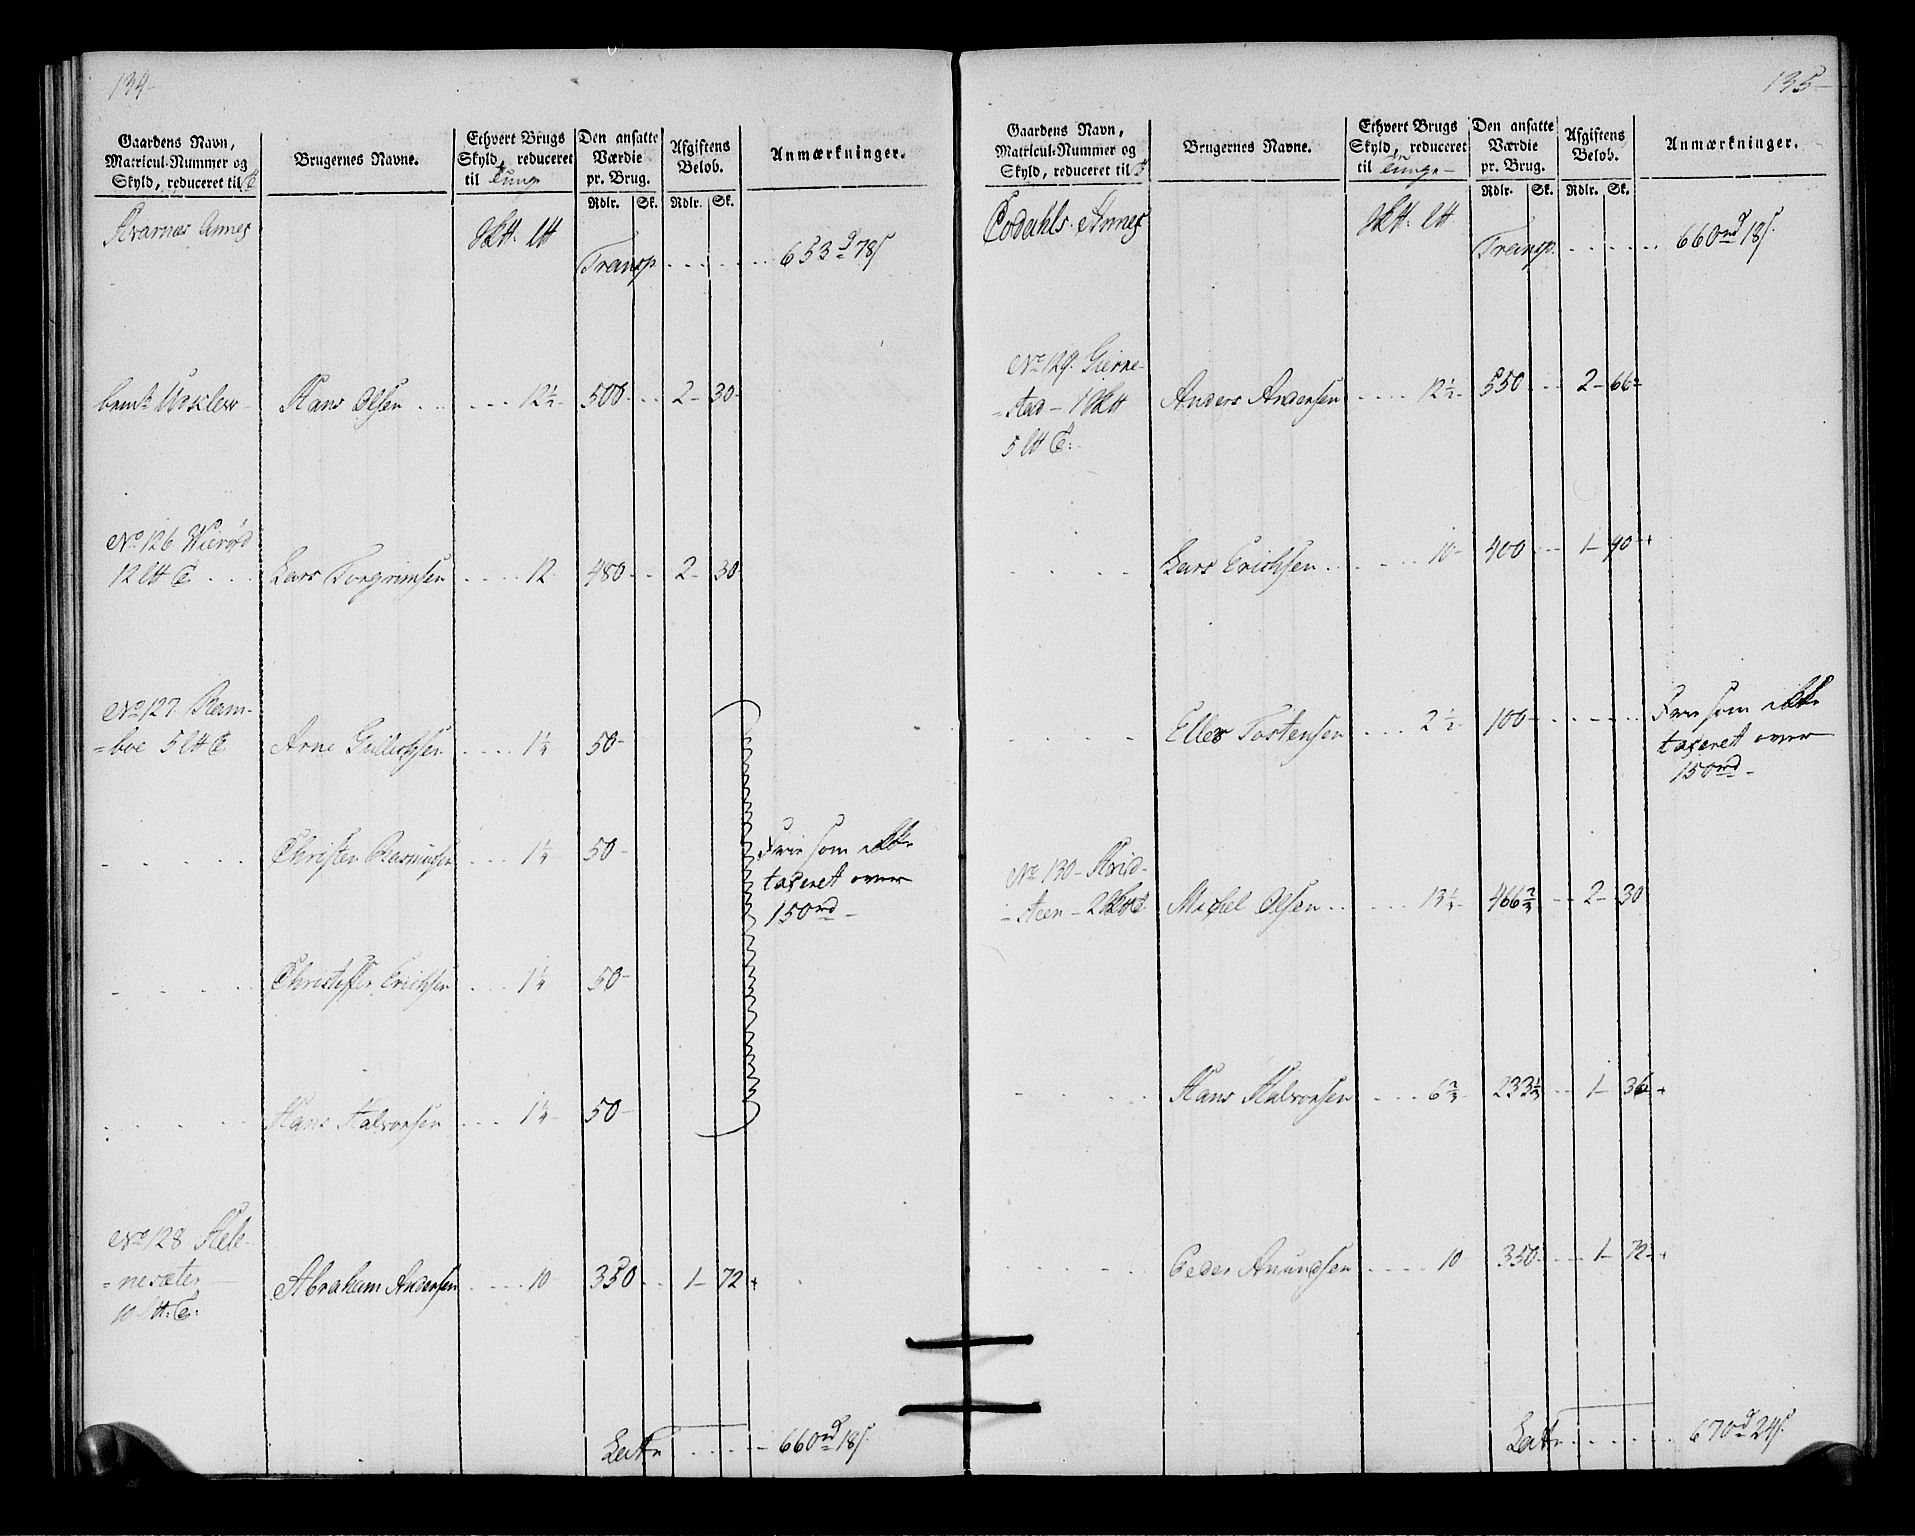 134
Gaardens Navn,
Matricul-Nummer og
Skyld, reduceret til
Brugernes Navne.
Ethvert Brugs
Skyld, reduceret
til Tunge
Den ansatte
Værdie
pr. Brug.
Afgiftens
Beløb.
Anmærkninger.
Rdlr. Sk. Rdlr. Sk.
Annex
Transp. 653 78
Hans Olsen 12½ 500 2 30
No 126
12
Lars Torgrimsen 12 480 2 30
No 127. Ram-
=boe 5
Arne 1¼ 50
Christen Rasmusen 1¼ 50
Frie som ikke
taxeret over
150 rd
Christoffer Erichsen 1¼ 50
Hans Halvorsen 1¼ 50
No 128 Hele-
=nesæter
10
Abraham Andersen 10 350 1 72
Latr 660 rd 18
135
Gaardens Navn,
Matricul-Nummer og
Skyld, reduceret til
Brugernes Navne.
Ethvert Brugs
Skyld, reduceret
til Tunge
Den ansatte
Værdie
pr. Brug.
Afgiftens
Beløb.
Anmærkninger.
Rdlr. Sk. Rdlr. Sk.
Annex
Transp. 660 rd 18
No 129. Gierre-
=stad 1
5
Anders Andersen 12½ 550 2 66
Lars Erichsen 10 400 1 90
Ellev Tostensen 2½ 100
Frie som ikke
taxeret over
150 rd
No 130 Hvid-
=steen 2
Michel Olsen 13⅓ 466⅔ 2 30
Hans Halvorsen 6⅔ 233⅓ 1 36
Peder Anundsen 10 350 1 72
Latr 670 rd 24